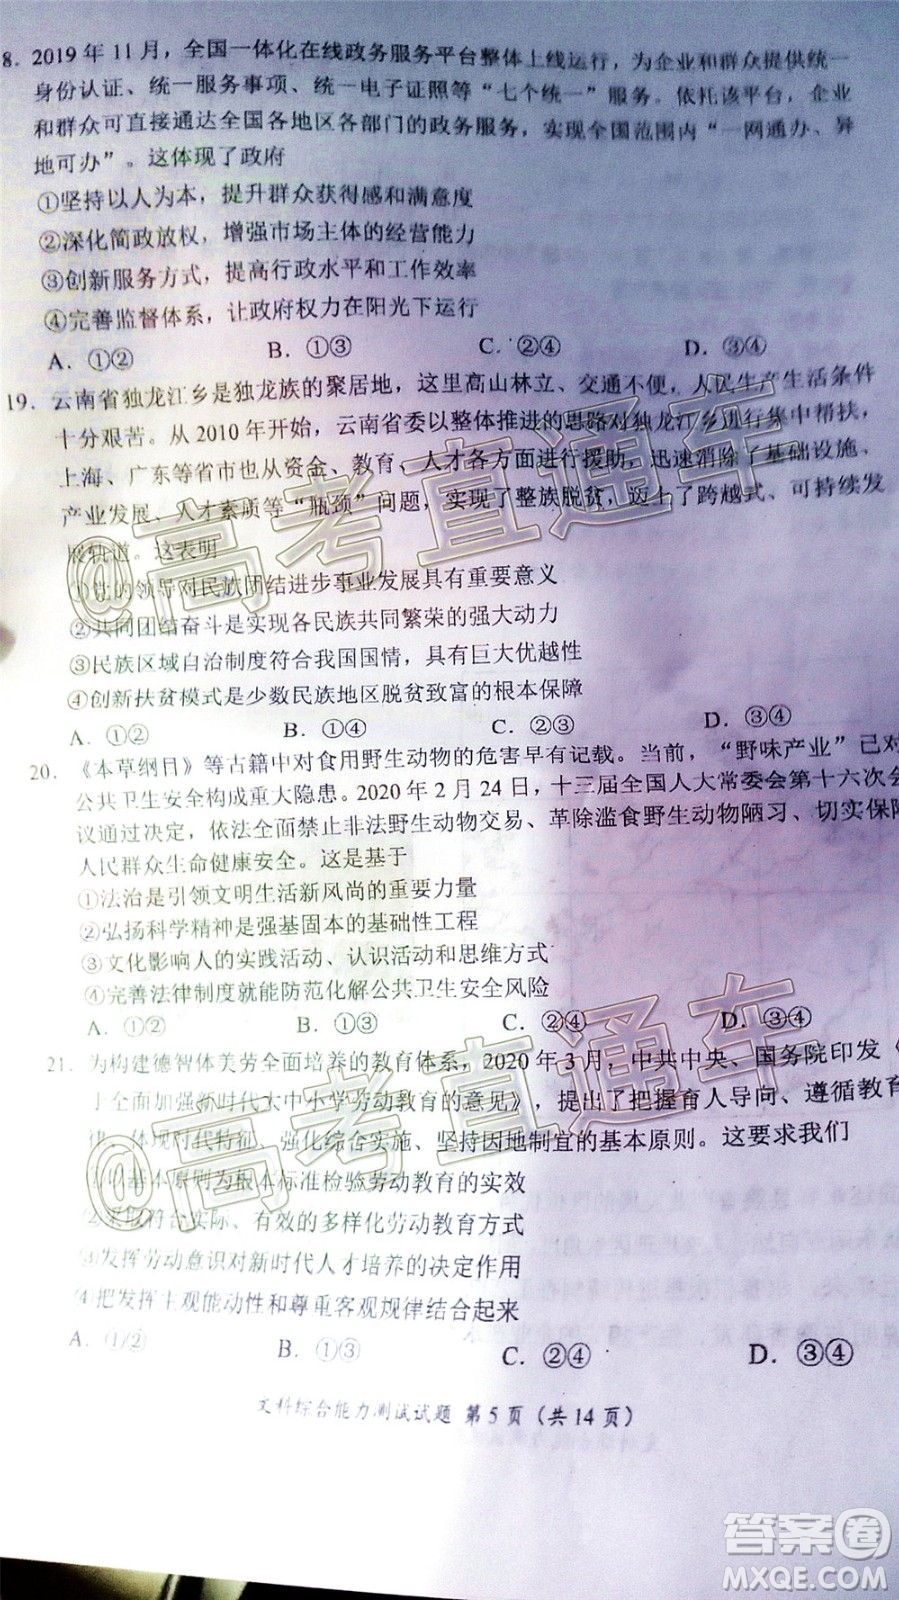 8．2019 年 11 月，全国一体化在线政务服务平台整体上线运行，为企业和群众提供统一
身份认证、统一服务事项、统一电子证照等“七个统一”服务。依托该平台，企业
和群众可直接通达全国各地区各部门的政务服务，实现全国范围内“一网通办、异
地可办”。这体现了政府
①坚持以人为本，提升群众获得感和满意度
②深化简政放权，增强市场主体的经营能力
③创新服务方式，提高行政水平和工作效率
④完善监督体系，让政府权力在阳光下运行
A．①② B．①③ C．②④ D．③④
19．云南省独龙江乡是独龙族的聚居地，这里高山林立、交通不便，人民生产生活条件
十分艰苦。从 2010 年开始，云南省委以整体推进的思路对独龙江乡进行集中帮扶，
上海、广东等省市也从资金、教育、人才各方面进行援助，迅速消除了基础设施、
产业发展、人才素质等“瓶颈”问题，实现了整族脱贫，迈上了跨越式、可持续发
展轨道。这表明
①党的领导对民族团结进步事业发展具有重要意义
②共同团结奋斗是实现各民族共同繁荣的强大动力
③民族区域自治制度符合我国国情，具有巨大优越性
④创新扶贫模式是少数民族地区脱贫致富的根本保障
A．①② B．①④ C．②③ D．③④
20．《本草纲目》等古籍中对食用野生动物的危害早有记载。当前，“野味产业”已对
公共卫生安全构成重大隐患。2020 年 2 月 24 日，十三届全国人大常委会第十六次会
议通过决定，依法全面禁止非法野生动物交易、革除滥食野生动物陋习、切实保障
人民群众生命健康安全。这是基于
①法治是引领文明生活新风尚的重要力量
②弘扬科学精神是强基固本的基础性工程
③文化影响人的实践活动、认识活动和思维方式
④完善法律制度就能防范化解公共卫生安全风险
A．①② B．①③ C．②④ D．③④
21．为构建德智体美劳全面培养的教育体系，2020 年 3 月，中共中央、国务院印发《
于全面加强新时代大中小学劳动教育的意见》，提出了把握育人导向、遵循教育
律、体现时代特征、强化综合实施、坚持因地制宜的基本原则。这要求我们
①以基本原则为根本标准检验劳动教育的实效
②采取符合实际、有效的多样化劳动教育方式
③发挥劳动意识对新时代人才培养的决定作用
④把发挥主观能动性和尊重客观规律结合起来
A．①② B．①③ C．②④ D．③④
文科综合能力测试试题 第 5 页（共 14 页）
@高考直通车
@高考直通车
答案圈
MXQE.COM